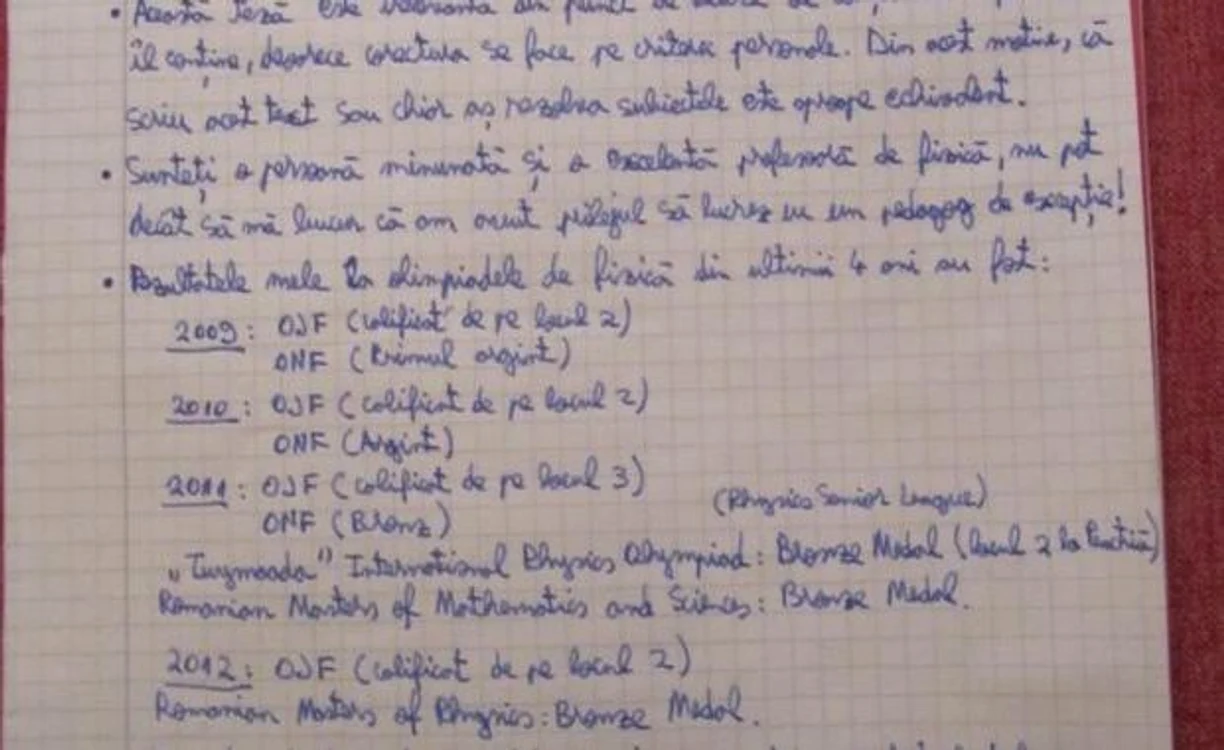 • Această teză este din punct de
îl conține, deoarece corectura se face pe criterii personale. Din acest motiv, că
scriu acest text sau chiar aș rezolva subiectele este aproape echivalent.
• Sunteți o persoană minunată și o excelentă profesoară de fizică, nu pot
decât să mă bucur că am avut prilejul să lucrez cu un pedagog de excepție!
• Rezultatele mele la olimpiadele de fizică din ultimii 4 ani au fost:
2009: OJF (calificat de pe locul 2)
ONF (Primul argint)
2010: OJF (calificat de pe locul 2)
ONF (Argint)
2011: OJF (calificat de pe locul 3)
(Physics Senior League)
ONF (Bronz)
„Tuymaada" International Physics Olympiad: Bronze Medal (locul 2 la Practică)
Romanian Masters of Mathematics and Sciences: Bronze Medal.
2012: OJF (calificat de pe locul 2)
Romanian Masters of Physics: Bronze Medal.